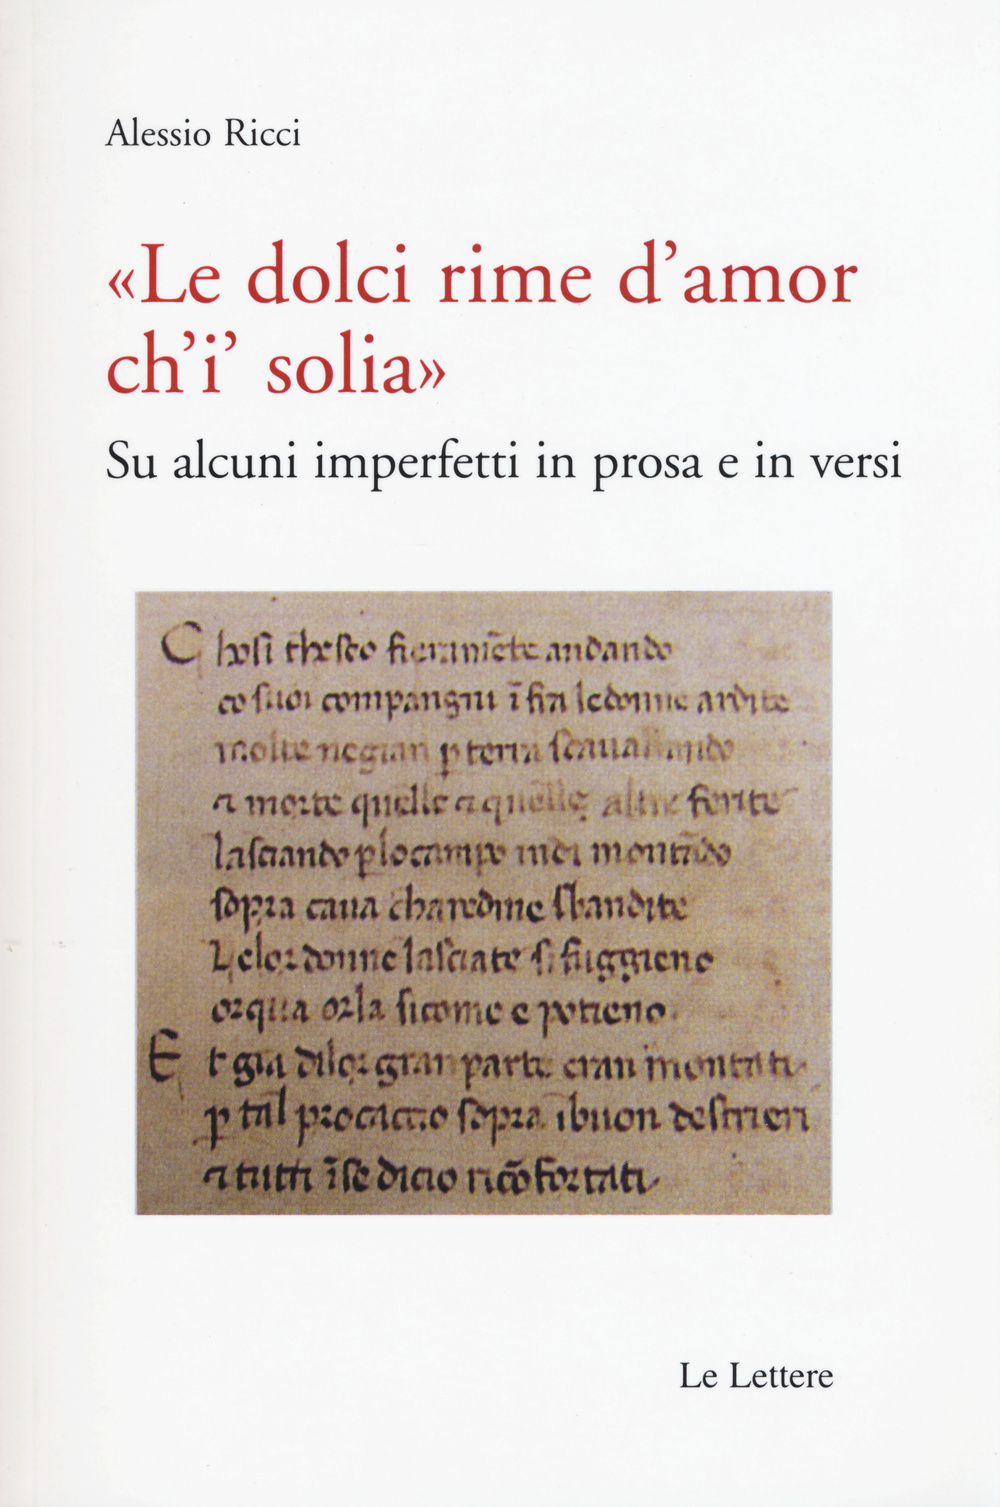 Alessio Ricci
«Le dolci rime d’amor
ch’i’ solia»
Su alcuni imperfetti in prosa e in versi
C hosi theseo fieramēte andando
co suoi compangni ī fra ledonne ardite
molte negian p terra scauallando
a morte quelle a quelle altre ferite
lasciando plocampo
sopra caua charedine sbandite
L elor donne lasciate si fuggieno
orqua orla sicome e potieno
E t gia dilor gran parte eran montati
p tal procaccio sopra ibuon destrieri
a tutti īse dicio ricōfortati
Le Lettere